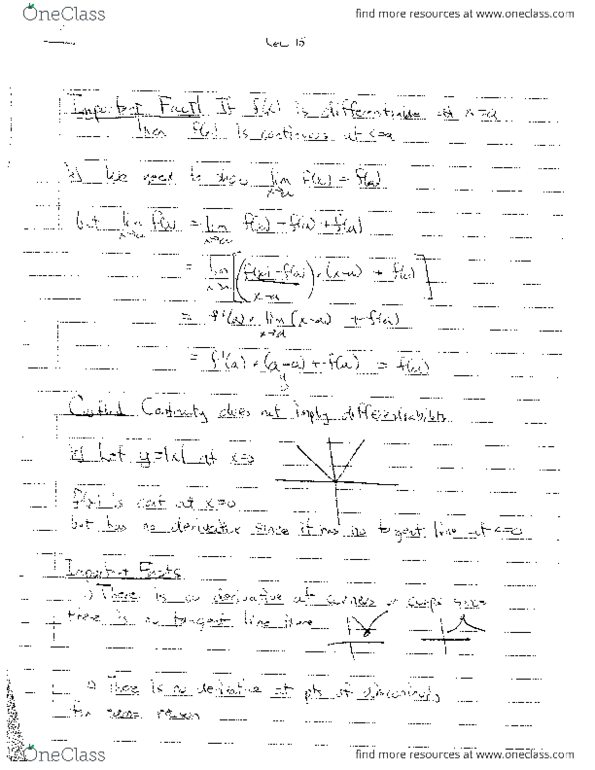 OneClass
find more resources at www.oneclass.com
15
Important Fact! If f(x) is differentiable at x=a
then f(x) is continuous at x=a
We need to show lim x→a f(x) = f(a)
but lim x→a f(x) = lim x→a f(x) - f(a) + f(a)
= lim x→a [ ( f(x) - f(a) / x-a ) · (x-a) + f(a) ]
= f'(a) · lim x→a (x-a) + f(a)
= f'(a) · (a-a) + f(a) = f(a)
Continuity does not imply differentiability
y=|x| at x=0
f(x) is cont at x=0
but has no derivative since it has no tangent line at x=0
Important Facts
1) There is no derivative at corners or cusps since
there is no tangent line here
There is no derivative at pts of discontinuity
same reason
OneClass
find more resources at www.oneclass.com